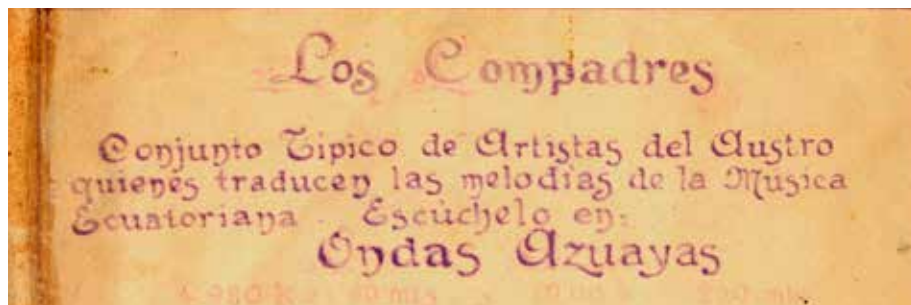 Los Compadres
Conjunto Típico de Artistas del Austro
quienes traducen las melodías de la Música
Ecuatoriana Escúchelo en:
Ondas Azuayas